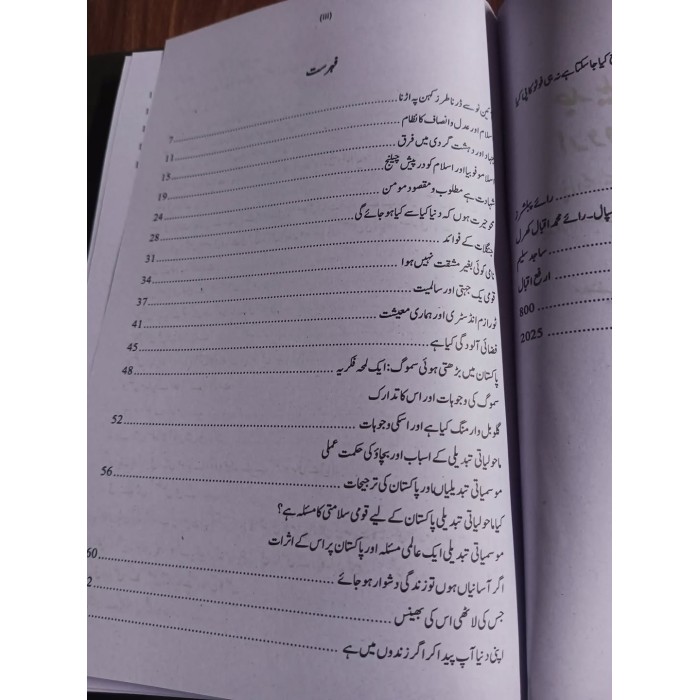 (iii)
فہرست
سے ڈرنا طرز کہن پہ اڑنا
اسلام اور عدل و انصاف کا نظام ........ 7
جہاد اور دہشت گردی میں فرق ........ 11
اسلاموفوبیا اور اسلام کو درپیش چیلنج ........ 13
شہادت ہے مطلوب و مقصود مومن ........ 19
محو حیرت ہوں کہ دنیا کیا سے کیا ہو جائے گی ........ 24
جنگلات کے فوائد ........ 28
نامی کوئی بغیر مشقت نہیں ہوا ........ 31
قومی یک جہتی اور سالمیت ........ 34
ٹورازم انڈسٹری اور ہماری معیشت ........ 37
فضائی آلودگی کیا ہے ........ 41
پاکستان میں بڑھتی ہوئی سموگ: ایک لمحہ فکریہ ........ 45
سموگ کی وجوہات اور اس کا تدارک ........ 48
گلوبل وارمنگ کیا ہے اور اسکی وجوہات
ماحولیاتی تبدیلی کے اسباب اور بچاؤ کی حکمت عملی ........ 52
موسمیاتی تبدیلیاں اور پاکستان کی ترجیحات
کیا ماحولیاتی تبدیلی پاکستان کے لیے قومی سلامتی کا مسئلہ ہے؟ ........ 56
موسمیاتی تبدیلی ایک عالمی مسئلہ اور پاکستان پر اس کے اثرات
اگر آسانیاں ہوں تو زندگی دشوار ہو جائے ........ 60
جس کی لاٹھی اس کی بھینس ........ 2
اپنی دنیا آپ پیدا کر اگر زندوں میں ہے
کیا جا سکتا ہے نہ ہی فوٹو کاپی کیا
رائے پبلشرز
رائے محمد اقبال کھرل
ساجد سلیم
ارفع اقبال
800
2025